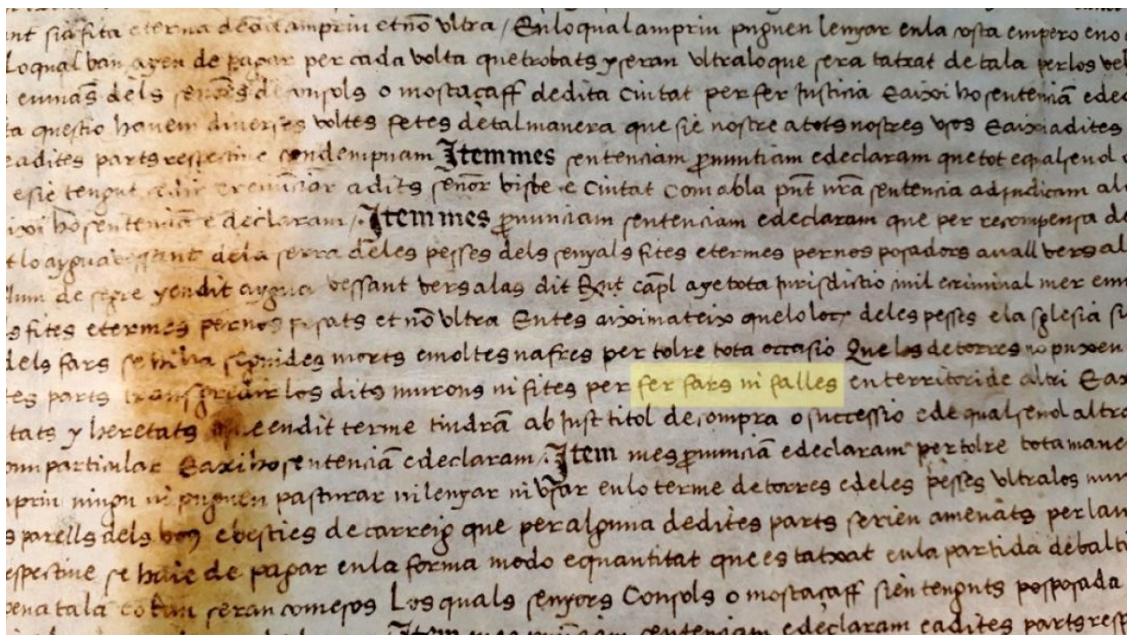 nt sia fita eterna de ampriu et nõ vltra / En lo qual ampriu puguen lenyar en la costa empero en
Lo qual ban agen de pagar per cada volta que trobats y seran vltra lo que sera tatxat de tala per los
dels de consols o mostaçaff de dita Ciutat per fer Justicia E aixi ho sentenciã e
ta questio havem diverses voltes fetes de tal manera que sie nostre a tots nostres vsos E aixi a dites
e a dites parts respectiue condempnam Item mes sentenciam p̃nuntiam e declaram que tot e qualsevol
e sie tengut a dits señor bisbe e Ciutat Com ab la pñt nrã sentencia adjudicam
ixi ho sentenciã e declaram / Item mes p̃nunciam sentenciam e declaram que per recompensa de
t lo aygua vessant de la serra de les pesses dels senyals fites e termes per nos posados auall vers al
de segre y en dit aygua vessant vers alas dit Rnt capl age tota jurisdictio ciuil criminal mer e
s fites e termes per nos posats et nõ vltra Entes aixi mateix que lo loch de les pesses e la sglesia
dels fars morts e moltes nafres per tolre tota occasio Que los de torres no puxen
tes parts los dits murons ni fites per fer fars ni falles en territori de altri Eax
tats y heretats que en dit terme tindrã ab Just titol de compra o successio e de qualsevol altro
particular E axi ho sentenciã e declaram / Item mes p̃nunciã e declaram per tolre tota mane
ampriu ningu ni puguen pasturar ni lenyar ni vsar en lo terme de torres e de les pesses vltra los
s parells dels bous e besties de carreig que per alguna de dites parts serien amenats per
espectiue se haie de pagar en la forma modo e quantitat que es tatxat en la partida de
pena tala seran comesos Los quals senyors Consols o mostaçaff sien tenguts posposada
Item mes sentenciam e declaram e a dites parts resp